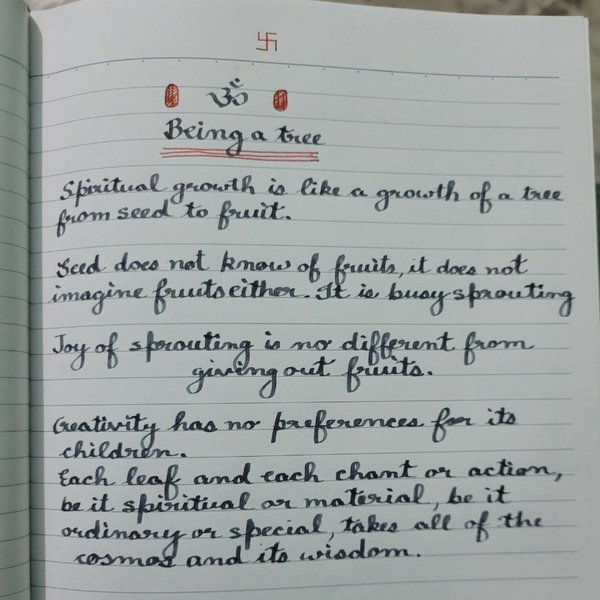 卐
ॐ
Being a tree
Spiritual growth is like a growth of a tree
from seed to fruit.
Seed does not know of fruits, it does not
imagine fruits either. It is busy sprouting
Joy of sprouting is no different from
giving out fruits.
Creativity has no preferences for its
children.
Each leaf and each chant or action,
be it spiritual or material, be it
ordinary or special, takes all of the
cosmos and its wisdom.